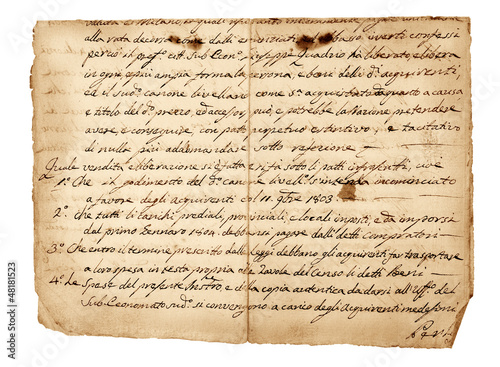 alla rata decorsa
perciò il pref.º citt. Sub Econ.º Giuseppe Quadrio ha liberato e libera
in ogni, e più ampia forma la persona, e beni delli d.i acquirenti,
ed il sud.º canone livellare come s.ª acquestrato da quanto a causa
e titolo del d.º prezzo, ed accessorj può, e potrebbe la Nazione pretendere
avere, e conseguire, con patto perpetuo estintivo, e tacitativo
di nulla più addimandare sotto refezione
Quale vendita e liberazione si è fatta e si fà sotto li patti infrascritti, cioè
1.º Che il godimento del d.º canone livell.º s'intenda incominciato
a favore degli acquirenti col 11. 9bre 1803.
2.º che tutti li carichi prediali, provinciali, e locali imposti, e da imporsi
dal primo Gennaro 1804. debbansi pagare dalli detti Compratori
3.º Che entro il termine prescritto dalle leggi debbano gli acquirenti far trasportare
a loro spesa in testa propria alle Tavole del Censo li detti Beni
4.º Le Spese del presente Instro, e della copia autentica da darsi all'Uff.º del
Sub Economato sud.º si convengono a carico degli Acquirenti medesimi
48181523